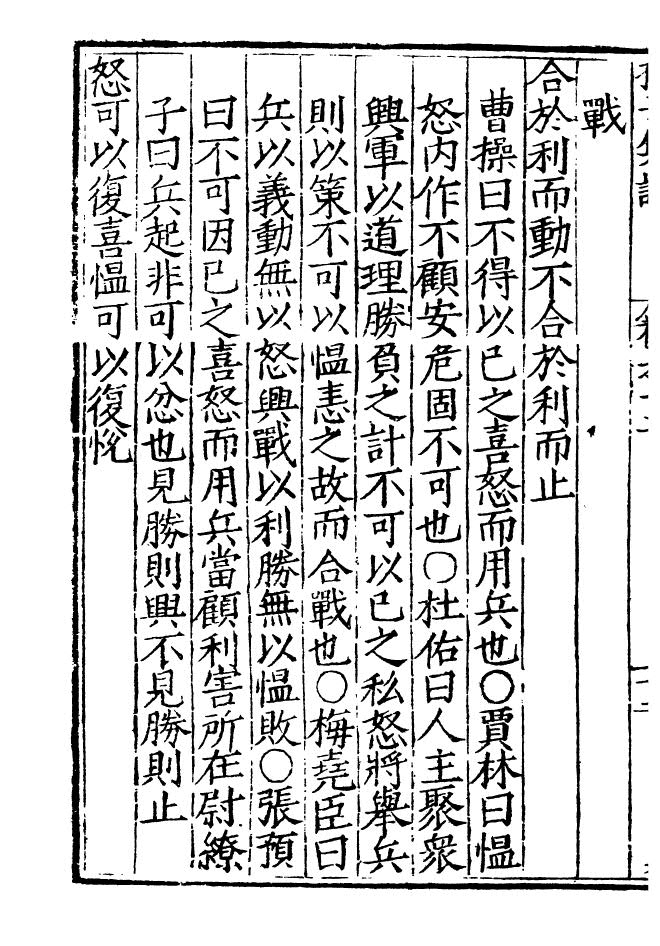 戰
合於利而動不合於利而止
曹操曰不得以己之喜怒而用兵也○賈林曰愠
怒内作不顧安危固不可也○杜佑曰人主聚衆
興軍以道理勝負之計不可以己之私怒將舉兵
則以策不可以愠恚之故而合戰也○梅堯臣曰
兵以義動無以怒興戰以利勝無以愠敗○張預
曰不可因己之喜怒而用兵當顧利害所在尉繚
子曰兵起非可以忿也見勝則興不見勝則止
怒可以復喜愠可以復悅